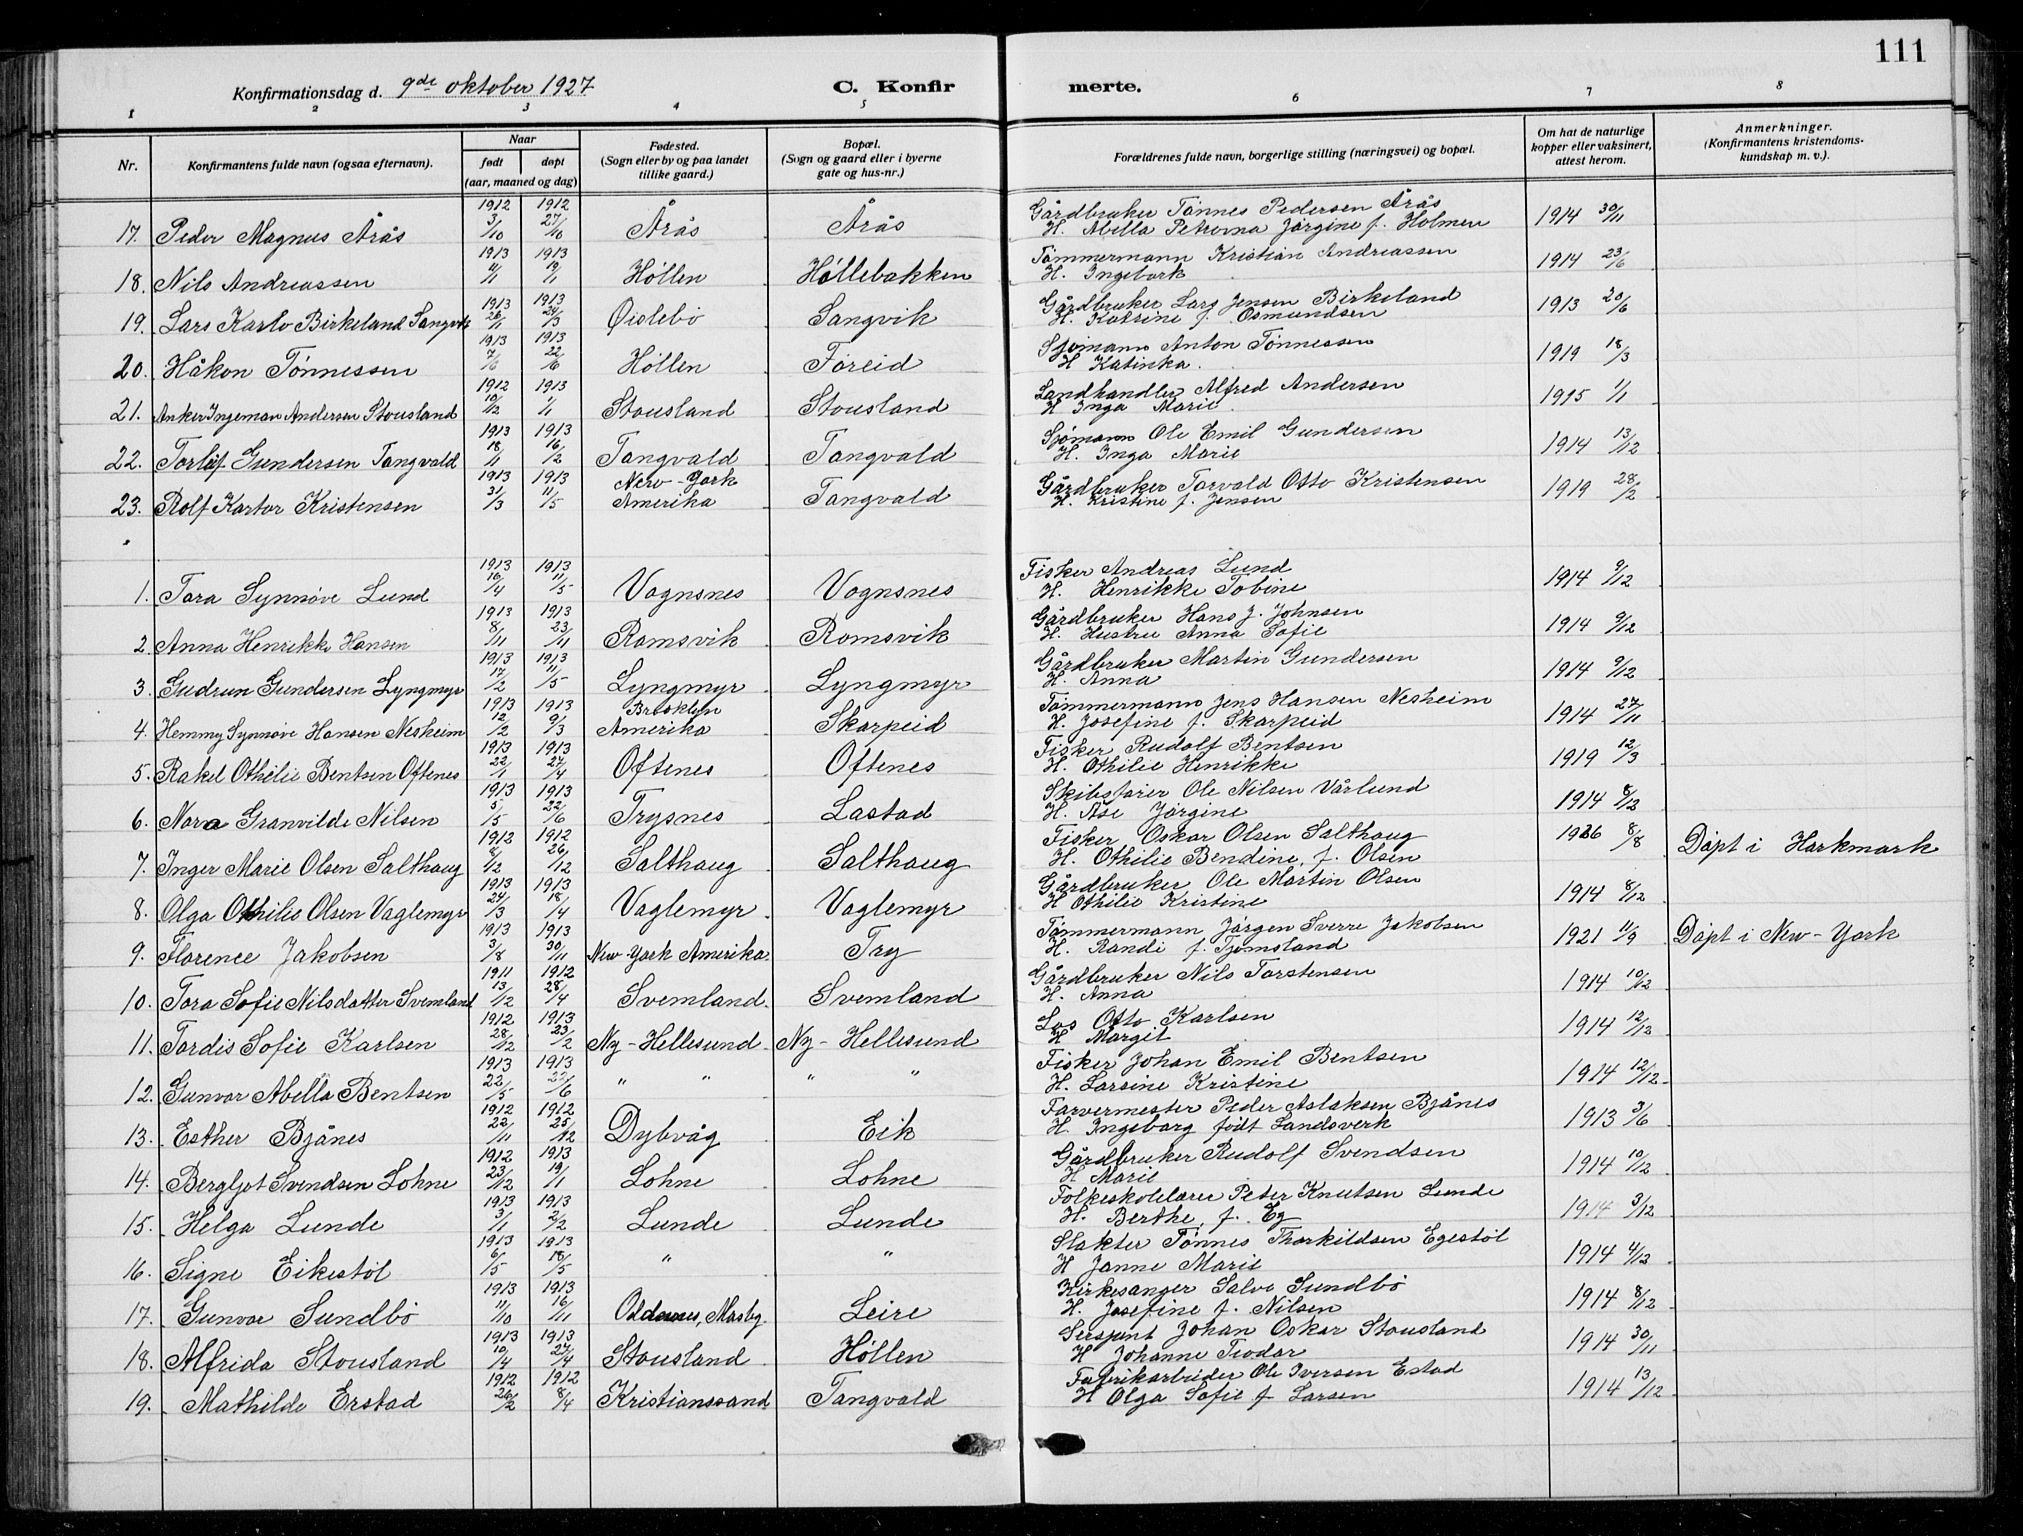 111
Konfirmationsdag d. 9de oktober 1927 C. Konfir merte.
1 2 3 4 5 6 7 8
Nr. Konfirmantens fulde navn (ogsaa efternavn). Naar født døpt (aar, maaned og dag) Fødested. (Sogn eller by og paa landet tillike gaard.) Bopæl. (Sogn og gaard eller i byerne gate og hus-nr.) Forældrenes fulde navn, borgerlige stilling (næringsvei) og bopæl. Om hat de naturlige kopper eller vaksinert, attest herom. Anmerkninger. (Konfirmantens kristendomskundskap m. v.).
17. Peder Magnus Årås 1912 3/10 1912 27/10 Årås Årås Gårdbruker Tønnes Pedersen Årås H. Abella Petrovna Jørgine f. Holmen 1914 30/11
18. Nils Andreassen 1913 1913 19/1 Höllen Höllebakken Tømmermann Kristian Andreassen H. Ingebork 1914 23/6
19. Lars Karlo Birkeland Sangvik 1913 26/1 1913 24/3 Øislebö Sangvik Gårdbruker Lars Jensen Birkeland H. Katrine f. Osmundsen 1913 20/6
20. Håkon Tönnessen 1913 1913 22/6 Höllen Föreid Sjömann Anton Tönnessen H Katinka. 1919 18/3
21. Anker Ingeman Andersen Stousland 1912 10/12 1913 1/1 Stousland Stousland Landhandler Alfred Andersen H Inga Marie. 1915 1/1
22. Torlåf Gundersen Tangvald 1913 18/1 1913 16/2 Tangvald Tangvald Sjömann Ole Emil Gundersen H. Inga Marie 1914 13/12
23. Rolf Kartor Kristensen 1913 31/3 1913 11/5 New-York Amerika Tangvald Gårdbruker Torvald Otto Kristensen H. Kristine f. Jensen 1919 28/2
1. Tora Synnöve Lund 1913 16/4 1913 11/5 Vognsnes Vognsnes Fisker Andreas Lund H. Henrikke Tobine 1914 9/12
2. Anna Henrikke Hansen 1913 8/11 1913 23/11 Romsvik Romsvik Gårdbruker Hans J. Johnsen H. Hustru Anna Sofie 1914 9/12
3. Gudrun Gundersen Lyngmyr 1913 17/2 1913 11/5 Lyngmyr Lyngmyr Gårdbruker Martin Gundersen H. Anna 1914 9/12
4. Hemmy Synnöve Hansen Nesheim 1913 12/2 1913 9/3 Brooklyn Amerika Skarpeid Tømmermann Jens Hansen Nesheim H. Josefine f. Skarpeid 1914 27/11
5. Rakel Othilie Bentsen Oftenes 1913 22/1 1913 27/4 Oftenes Oftenes Fisker Rudolf Bentsen H. Othilie Henrikke 1919 12/3
6. Nora Granvilde Nilsen 1913 5/5 1913 22/6 Trysnes Lastad Skibsfører Ole Nilsen Vårlund H. Åse Jörgine 1914 8/12
7. Inger Marie Olsen Salthaug 1912 8/12 1912 26/12 Salthaug Salthaug Fisker Oskar Olsen Salthaug H. Othilie Bendine, f. Olsen 1926 8/8 Döpt i Harkmark
8. Olga Othilie Olsen Vaglemyr 1913 24/3 1913 18/4 Vaglemyr Vaglemyr Gårdbruker Ole Martin Olsen H Othilie Kristine 1914 8/12
9. Florence Jakobsen 1913 3/8 1913 30/11 New-York Amerika Try Tømmermann Jörgen Sverre Jakobsen H. Randi f. Tjomsland 1921 11/9 Döpt i New-York
10. Tora Sofie Nilsdatter Svemland 1911 13/12 1912 28/4 Svemland. Svemland Gårdbruker Nils Torstensen H. Anna 1914 10/12
11. Tordis Sofie Karlsen 1912 28/12 1913 23/2 Ny-Hellesund. Ny-Hellesund Los Otto Karlsen H Margit 1914 12/12
12. Gunvor Abella Bentsen 1913 22/5 1913 22/6 " " " " Fisker Johan Emil Bentsen H. Larsine Kristine 1914 12/12
13. Esther Bjånes 1912 22/11 1912 25/12 Dybvåg Eik Farvermester Peder Aslaksen Bjånes H. Ingeborg født Landsverk 1913 3/6
14. Bergljot Svendsen Lohne 1912 23/12 1913 19/1 Lohne Lohne Gårdbruker Rudolf Svendsen H Marie 1914 10/12
15. Helga Lunde 1913 3/1 1913 2/2 Lunde Lunde Folkeskolelærer Peter Knutsen Lunde H. Berthe, f. Eg 1914 3/12
16. Signe Eikestöl 1913 6/5 1913 18/5 " " Slakter Tönnes Thorkildsen Egestöl H Janne Marie 1914 4/12
17. Gunvor Sundbö 1913 11/10 1913 16/11 Oddernes, Mosby. Leire Kirkesanger Salve Sundbö H. Josefine f. Nilsen 1914 8/12
18. Alfrida Stousland 1913 10/4 1913 27/4 Stousland Höllen Sersjant Johan Oskar Stousland H Johanne Tiodor 1914 30/11
19. Mathilde Erstad 1912 26/2 1912 8/4 Kristianssand Tangvald Fabrikarbeider Ole Iversen Estad H Olga Sofie f Larsen 1914 13/12